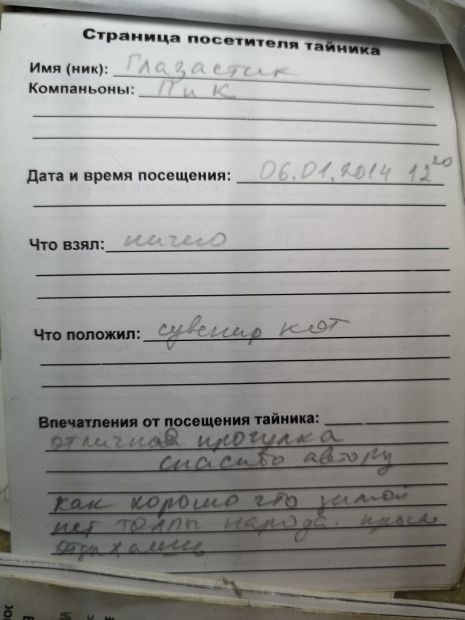 Страница посетителя тайника
Имя (ник): Глазастик
Компаньоны: Пик
Дата и время посещения: 06.01.2014 12²⁰
Что взял: ничего
Что положил: сувенир кот
Впечатления от посещения тайника:
отличная прогулка
спасибо автору
как хорошо что зимой
нет толпы народа.